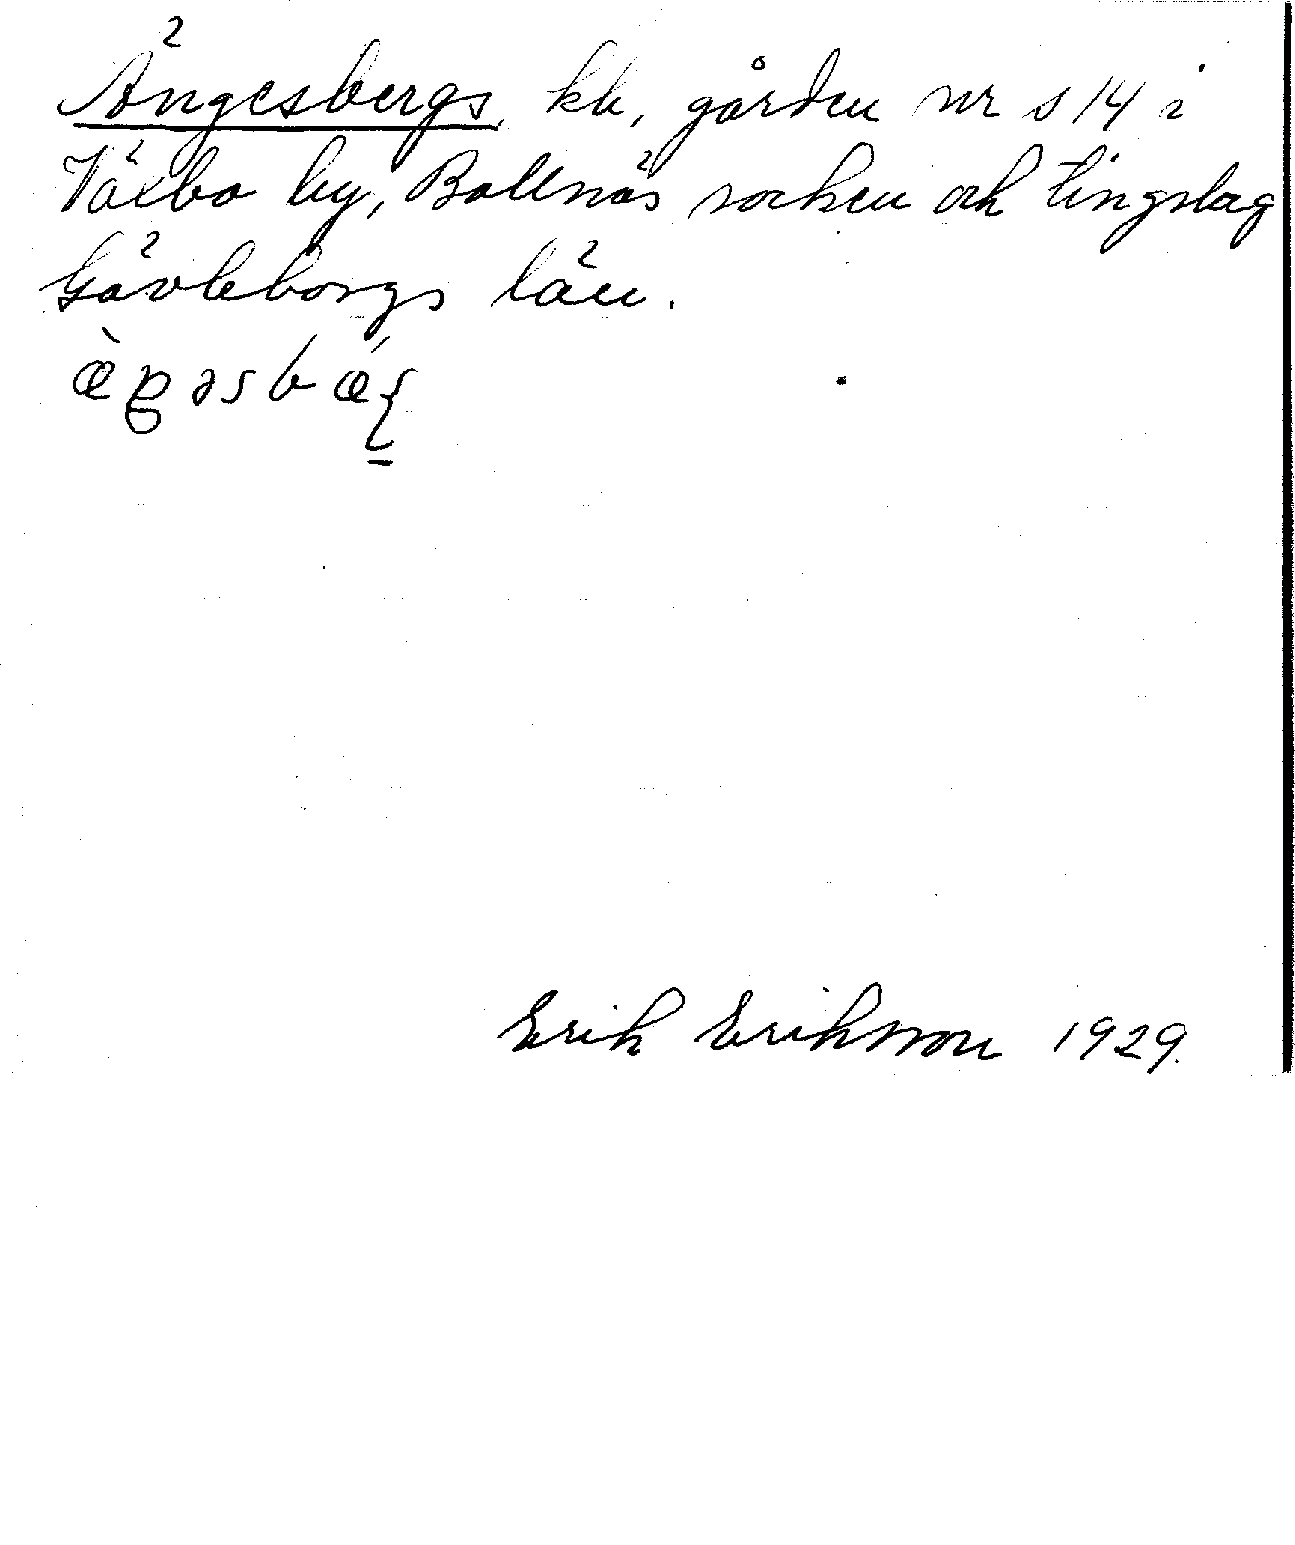 Ängesbergs, kb, gården nr s 14 i
Växbo by, Bollnäs socken och tingslag
Gävleborgs län.
Erik Eriksson 1929.